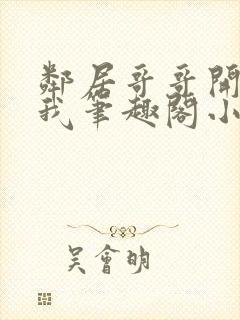 鄰居哥哥開
我筆趣閣小
吳會明